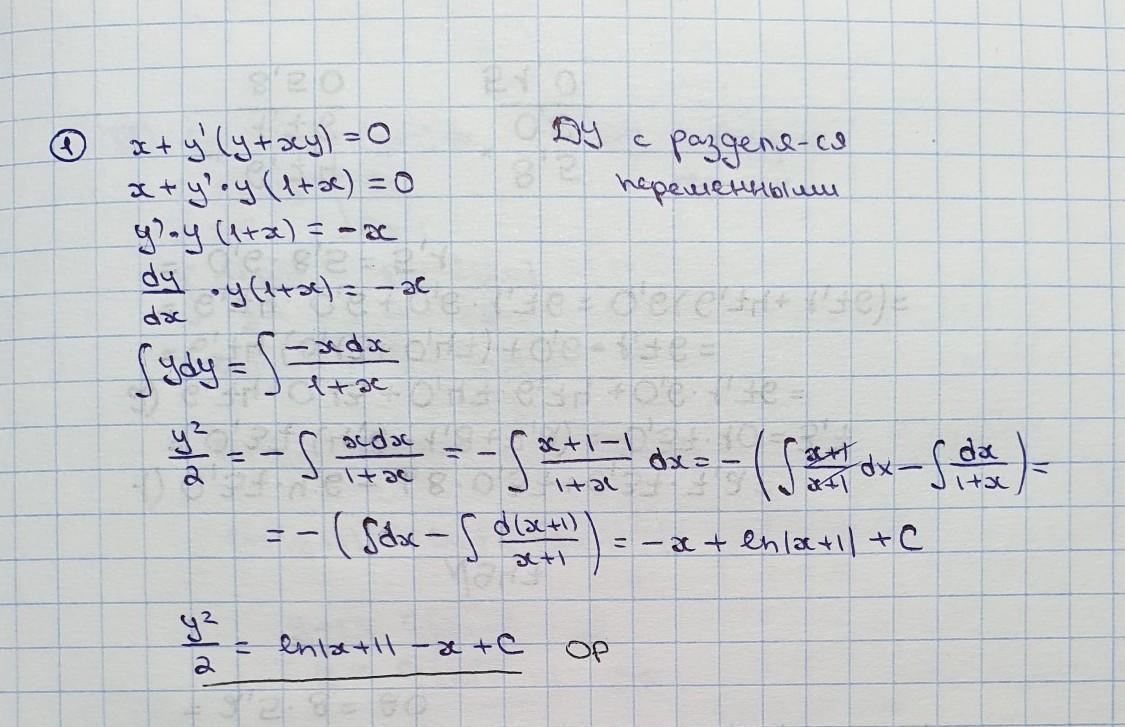 ① x + y' (y + xy) = 0 ДУ с разделя-ся
x + y' · y (1+x) = 0 переменными
y' · y (1+x) = -x
dy/dx · y(1+x) = -x
∫ y dy = ∫ -x dx / 1+x
y²/2 = - ∫ x dx / 1+x = - ∫ x+1-1 / 1+x dx = - ( ∫ x+1 / x+1 dx - ∫ dx / 1+x ) =
= - ( ∫ dx - ∫ d(x+1) / x+1 ) = -x + ln|x+1| + C
y²/2 = ln|x+1| - x + C ОР